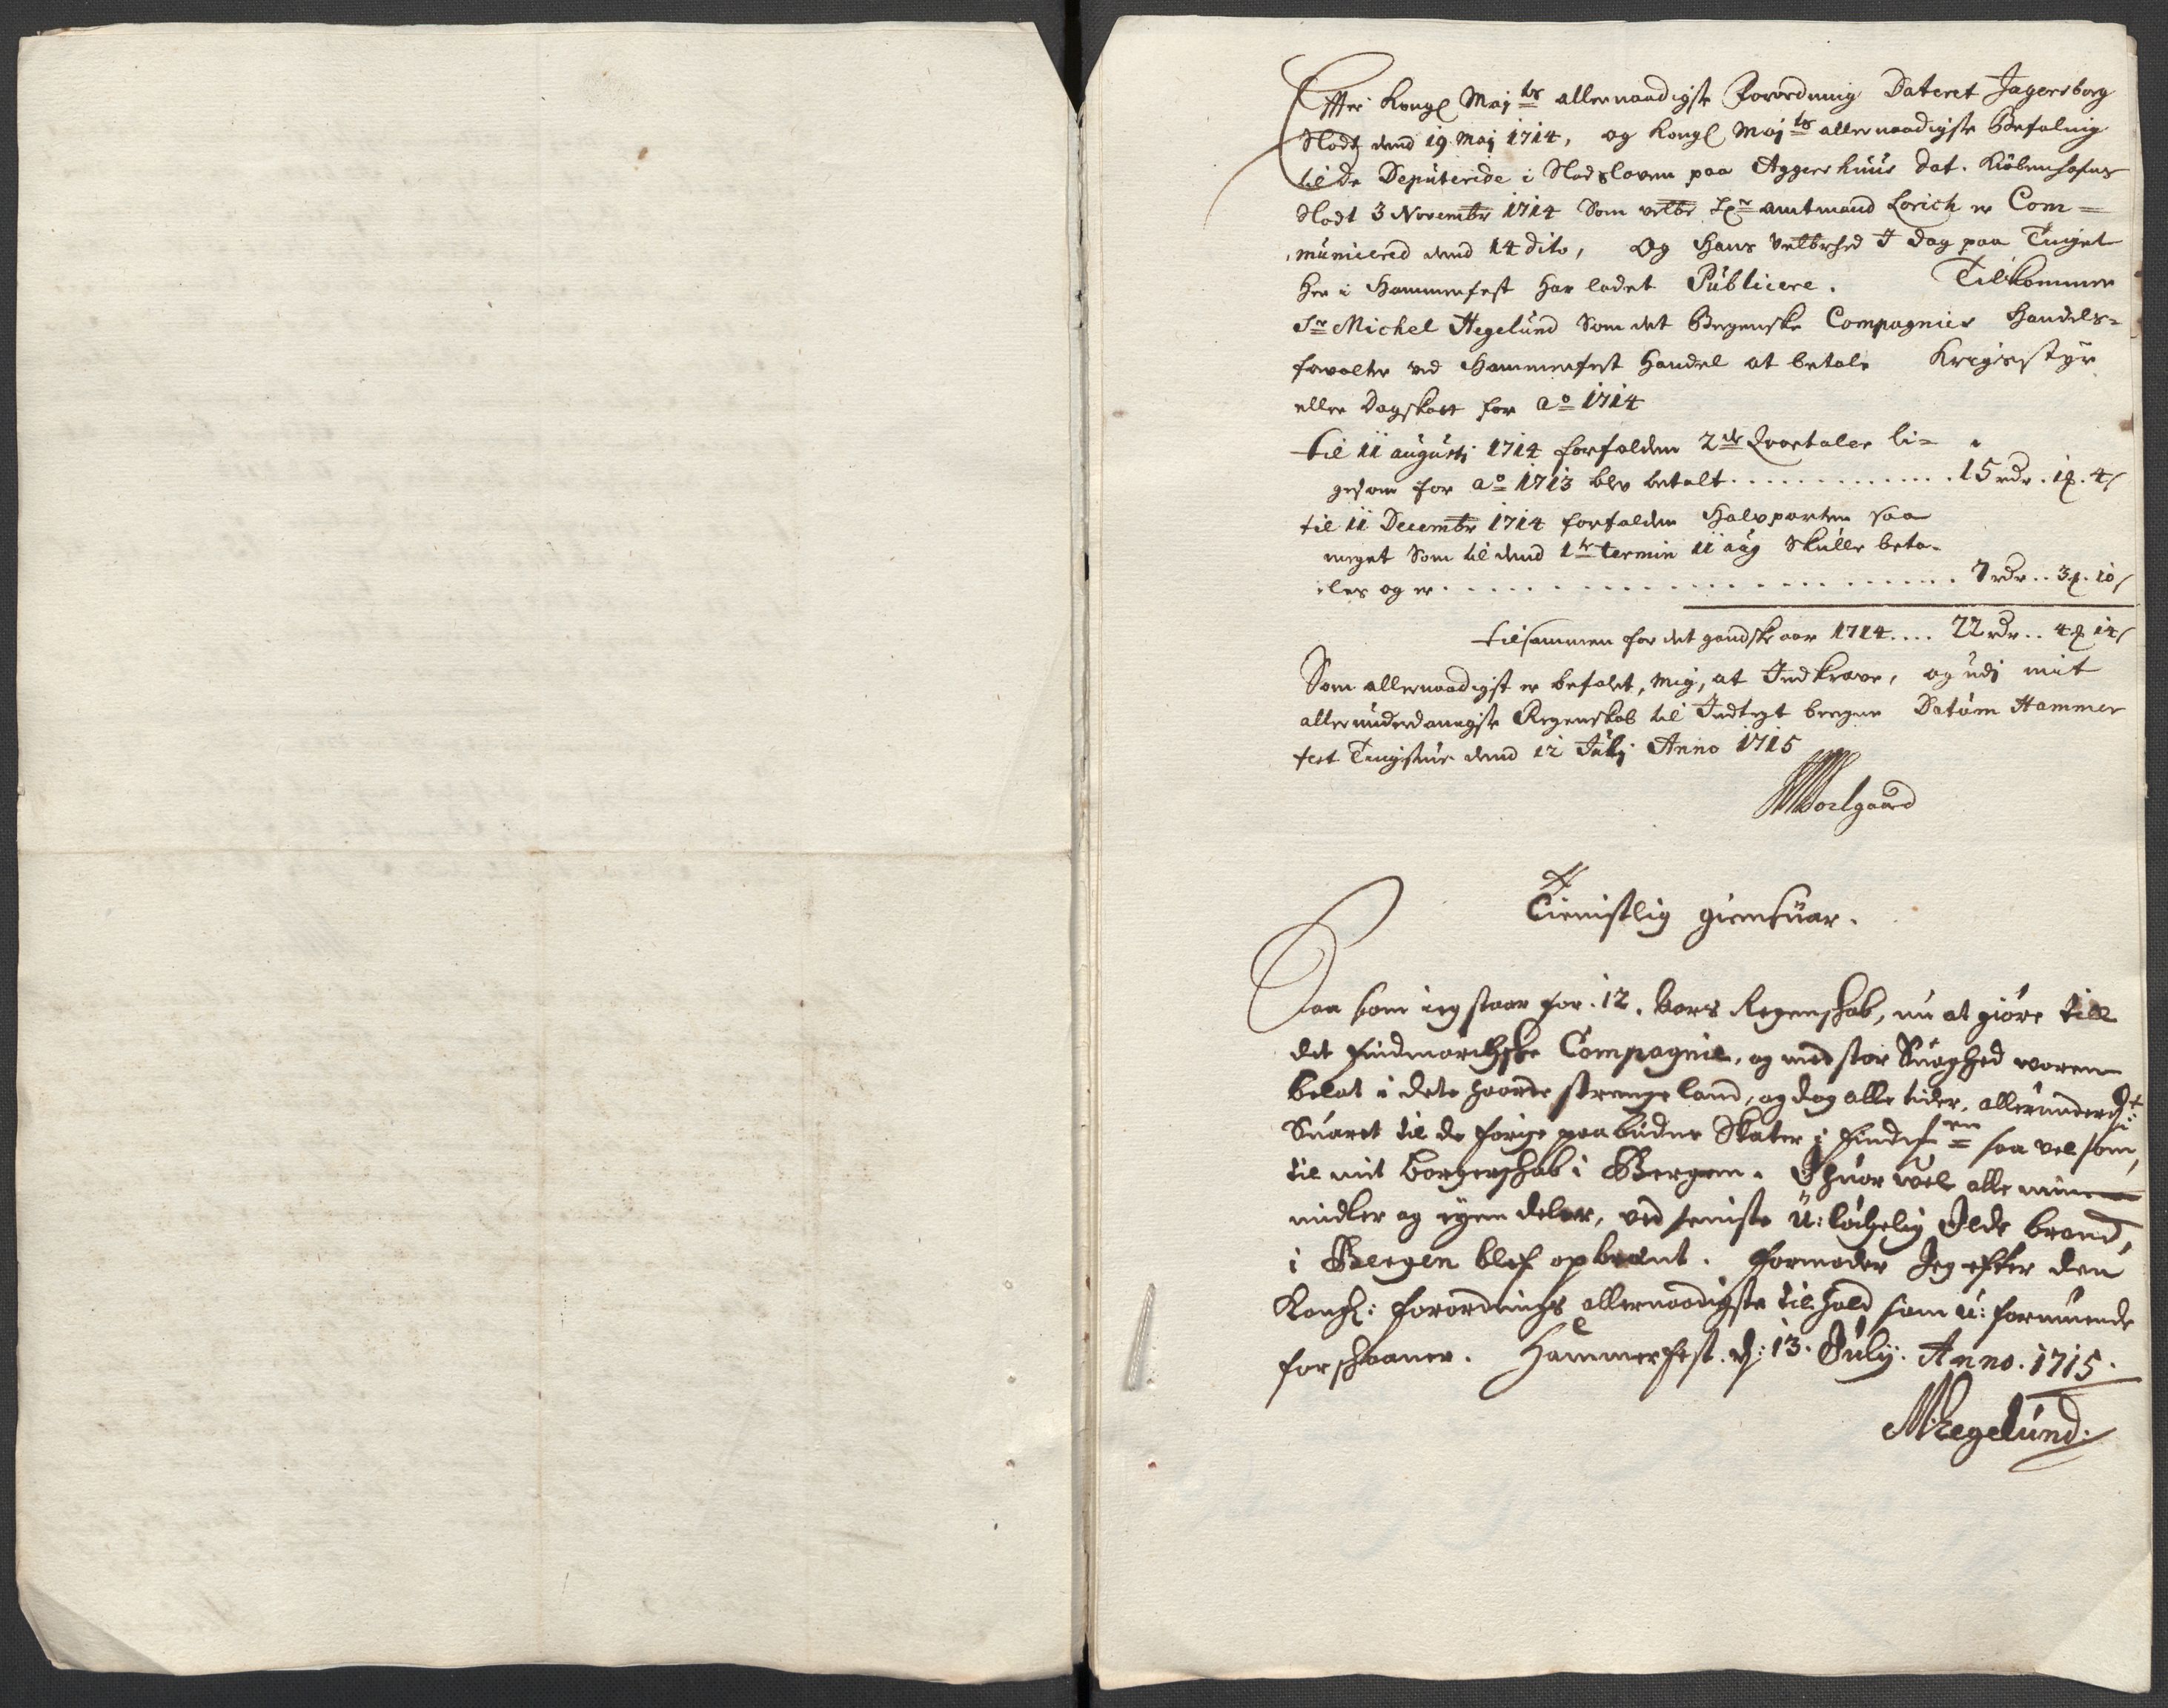 Effter Kongl Maytz allernaadigste Forordning Dateret Jagersborg
Slodt dend 19 Maj 1714, og Kongl Maytz allernaadigste Befaling
til de Deputeride i Slodsloven paa Aggershuus dat. Kiøbenhafns
Slodt 3 Novembr 1714 Som velbr Hr amtmand Lorich er Com=
municered dend 14 dito, Og Hans Velbrhed I dag paa Tinget
her i Hammerfest har ladet Publicere. Tilkommer
Sr Michel Hegelund Som det Bergenske Compagnies Handels-
forvalter ved Hammerfest Handel at betale Krigsstyr
eller Dagskat for ao 1714
til 11 augusti 1714 forfalden 2de Qvartaler li-
gesom for ao 1713 blev betalt . . . . . . 15 rdr. 1 ƒ. 4 s
til 11 Decembr 1714 forfalden Halvparten saa
meget Som til dend 1te termin 11 aug skulle beta-
les og er . . . . . . 7 rdr.. 3 ƒ. 10 s
tilsammen for det gandske aar 1714.... 22 rdr.. 4 ƒ 14 s
Som allernaadigst er befalet, mig, at Indkræve, og udj mit
allerunderdanigste Regenskab til Indtegt beregne Datum Hammer
fest Tingstue dend 12 Julj Anno 1715
Soelgaard
Tienistlig giensuar.
Saa som ieg staar for 12. aars Regenschab, nu at giøre till
det findmarchske Compagnie, og med stor Suaghed woren
belat i dete haarde strenge land, og dog alle tider, allerunderdt:
Suaret til de forige paabudne Skater i findm: saa vel som,
til mit borgerschab i Bergen. Ihuor vel alle mine
midler og eyendeler, ved seniste u:løchelig Ilds brand,
i Bergen blef opbrent. Formoder Jeg efter den
Kongl: forordnings allernaadigste tilhold som u:formuende
forschaaner. Hammerfest. d: 13. July. Anno. 1715.
MHegelund.